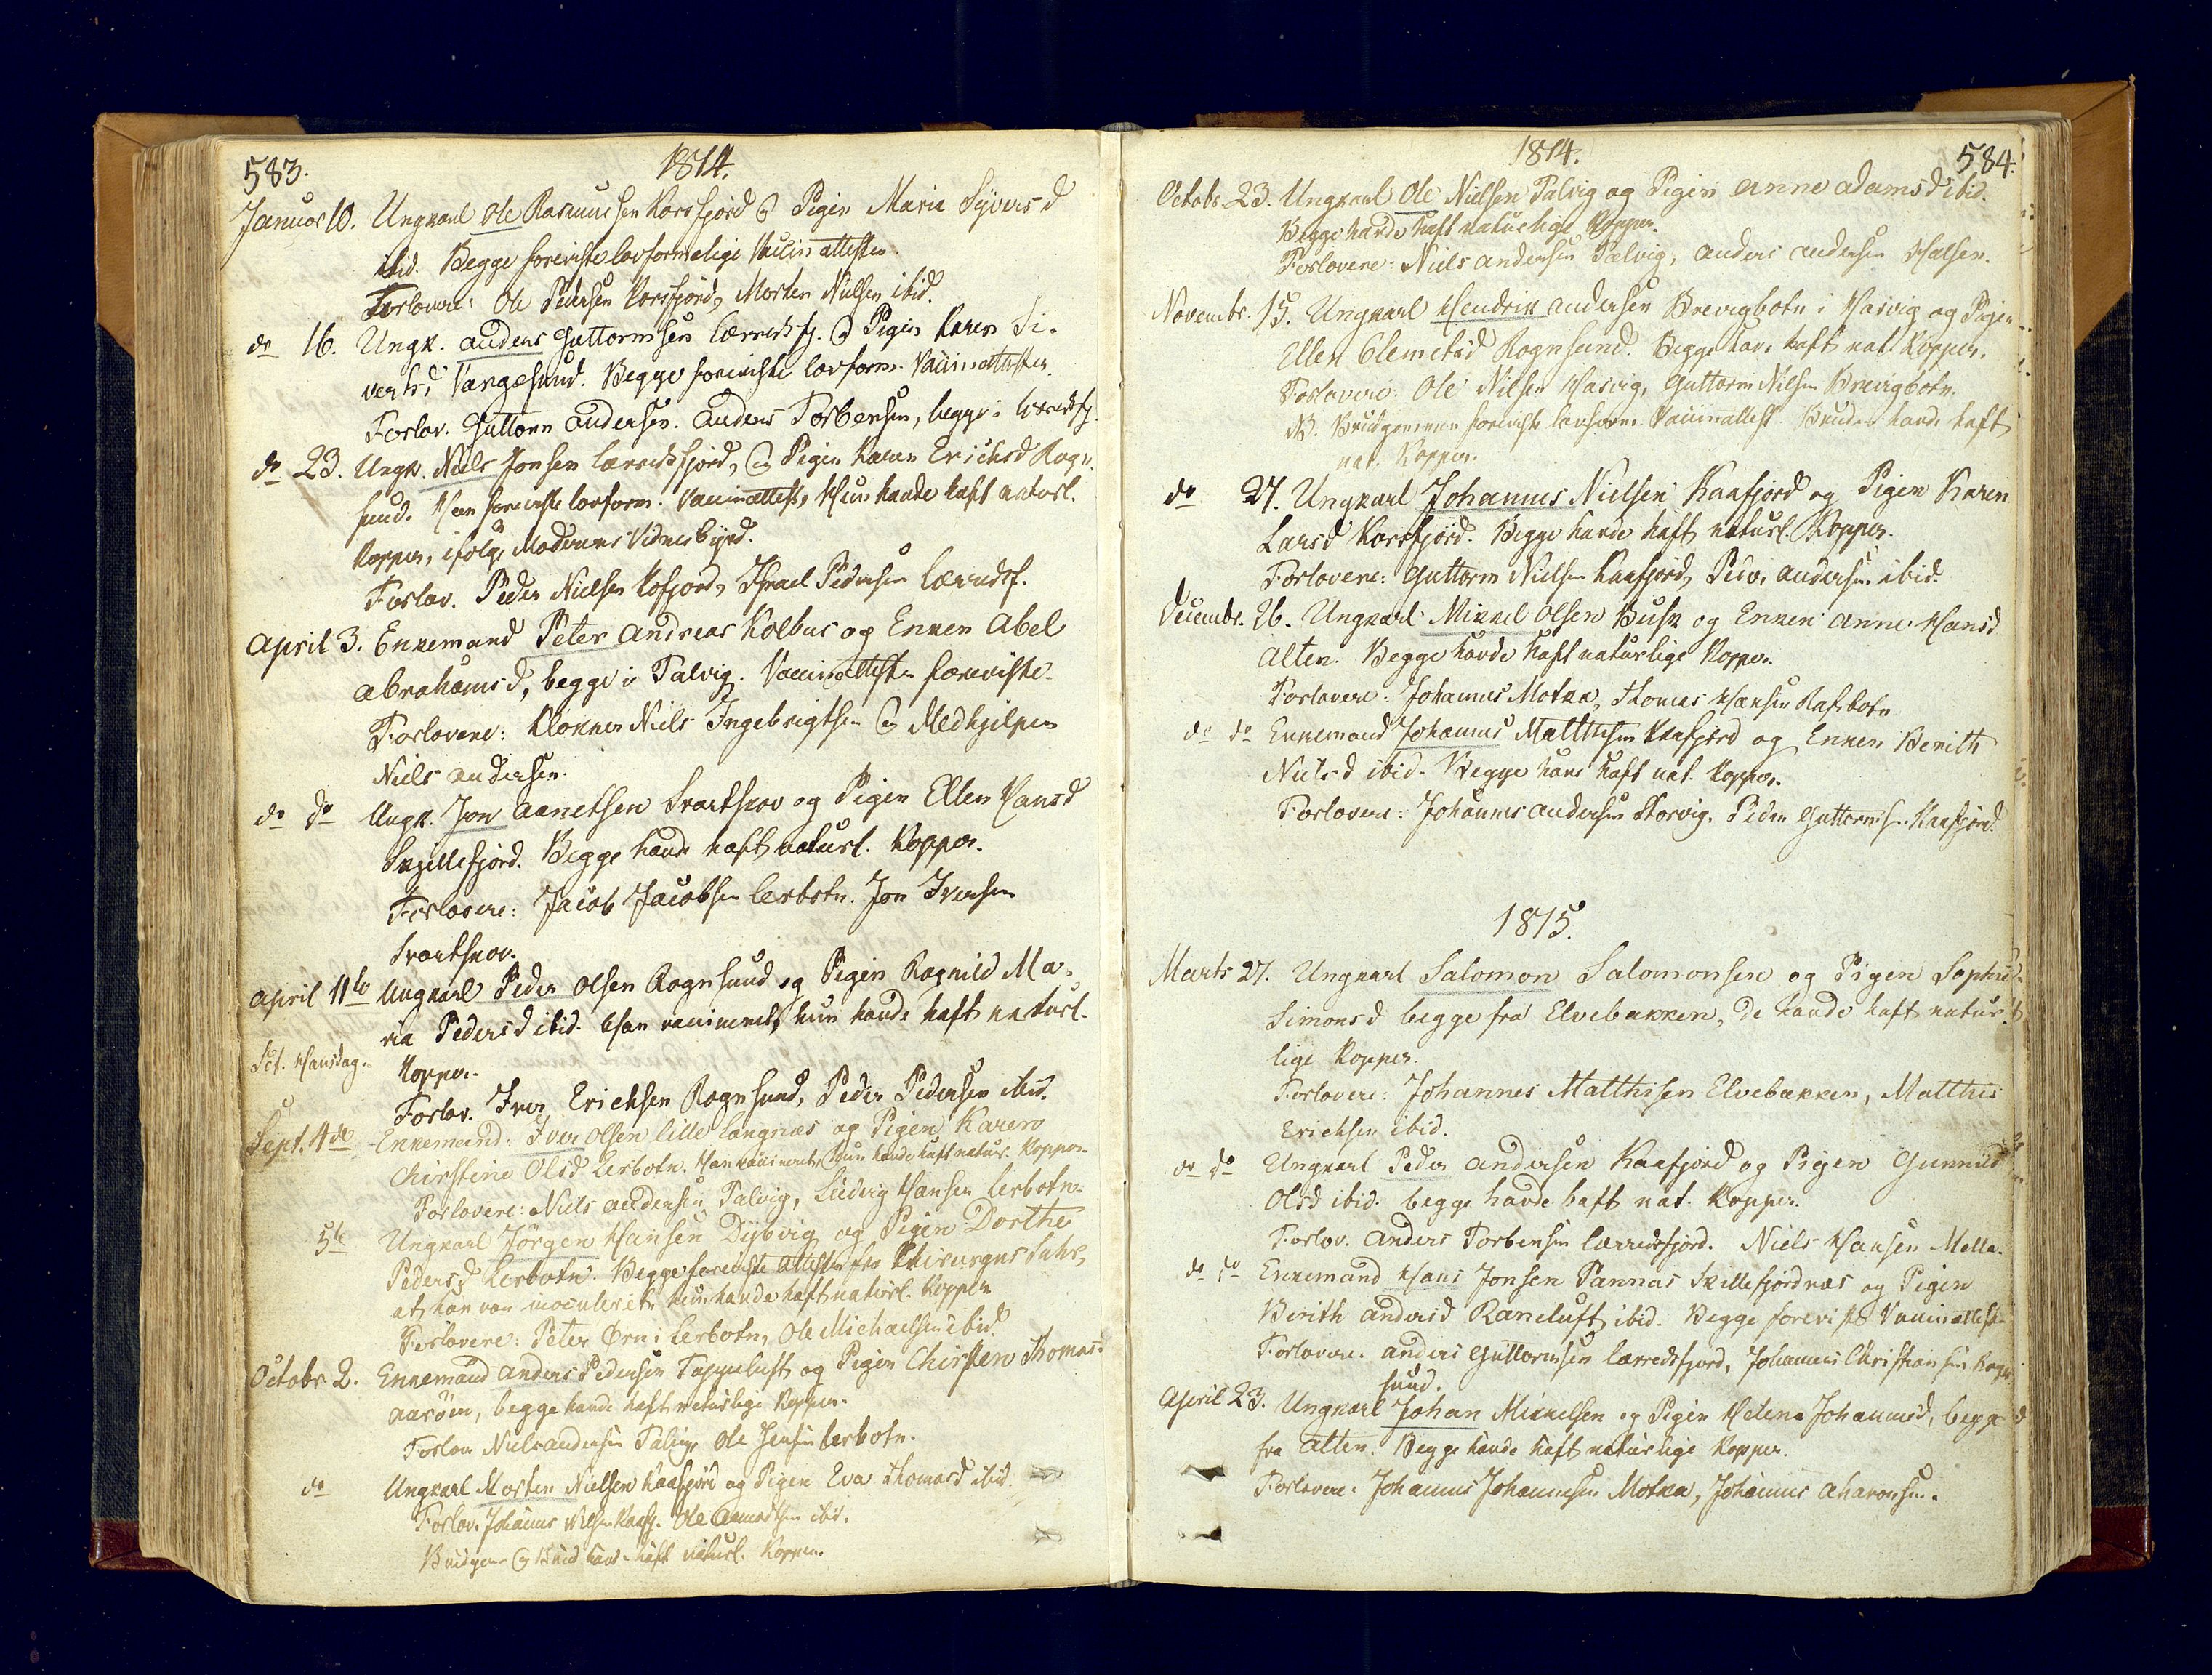 583.
1814.
Januar 10. Ungkarl Ole Rasmussen Korsfjord og Pigen Maria Syversd
ibid. Begge foreviste lovformelige Vaccinattester.
Forlovere: Ole Pedersen Korsfjord, Morten Nielsen ibid.
do 16. Ungk. Anders Guttormsen Lerredsfj. og Pigen Karen Si-
vertsd Vargesund. Begge foreviste lovform. Vaccinattester.
Forlov. Guttorm Andersen. Anders Torbensen, begge i Lerredsfj.
do 23. Ungk. Niels Jonsen Lærredsfjord, og Pigen Karen Erichsd Rogn-
sund. Han foreviste lovform. Vaccinattest, Hun havde haft naturl.
Kopper, ifølge Moderens Vidnesbyrd.
Forlov. Peder Nielsen Kofjord, Israel Pedersen Lærredsf.
April 3. Enkemand Peter Andreas Kolbus og Enken Abel
Abrahamsd, begge i Talvig. Vaccinattester foreviste.
Forlovere: Klokker Niels Ingebrigtsen og Medhjelper
Niels Andersen.
do do Ungk. Jon Aanetsen Svartskov og Pigen Ellen Hansd
Skillefjord. Begge havde haft naturl. Kopper.
Forlovere: Jacob Jacobsen Lerbotn. Jon Iversen
Svartskov.
April 11te Ungkarl Peder Olsen Rognsund og Pigen Ragnild Ma-
ria Pedersd ibid. Han vaccineret, hun havde haft naturl.
Sct. Hansdag. Kopper.
Forlov. Iver Erichsen Rognsund, Peder Pedersen ibid.
Sept. 4de Enkemand: Iver Olsen Lille Langnæs og Pigen Karen
Chirstine Olsd Lerbotn. Han vaccineret, hun havde haft natur. Kopper.
Forlovere: Niels Andersen Talvig, Ludvig Hansen Lerbotn.
5te Ungkarl Jørgen Hansen Dybvig og Pigen Dorthe
Pedersd Lerbotn. Begge foreviste Attester fra Chirurgus Suhr,
at han var inoculeret, hun havde haft naturl. Kopper
Forlovere: Peter Ørn i Lerbotn, Ole Michaelsen ibid.
Octobr 2. Enkemand Anders Pedersen Tappeluft og Pigen Chirsten Thomas-
Aarøen, begge havde haft naturlige Kopper.
Forlov. Niels Andersen Talvig, Ole Jensen Lerbotn.
do Ungkarl Morten Nielsen Kaafjord og Pigen Eva Thomasd ibid.
Forlov. Johannes Nilsen Kaafj. Ole Amundsen ibid.
Brudgom og Brud havde haft naturl. Kopper.
1814.
584.
Octobr. 23. Ungkarl Ole Nielsen Talvig og Pigen Anne Adamsd ibid.
Begge havde haft naturlige Kopper.
Forlovere: Niels Andersen Talvig, Anders Andersen Halsen.
Novembr. 15. Ungkarl Hendrik Andersen Brevigbotn i Hasvig og Pigen
Ellen Clemetsd Rognsund. Begge have haft nat. Kopper.
Forlovere: Ole Nilsen Hasvig, Guttorm Nilsen Brevigbotn.
NB. Brudgommen foreviste lovform. Vaccinattest. Bruden havde haft
nat. Kopper.
do 27. Ungkarl Johannes Nielsen Kaafjord og Pigen Karen
Larsd Korsfjord. Begge havde haft naturl. Kopper.
Forlovere: Guttorm Nielsen Kaafjord, Peder Andersen ibid.
Decembr. 26. Ungkarl Mikkel Olsen Busk og Enken Anne Hansd
Alten. Begge havde haft naturlige Kopper.
Forlovere: Johannes Motka, Thomas Hansen Rafsbotn
do do Enkemand Johannes Matthisen Kaafjord og Enken Berith
Nielsd ibid. Begge have haft nat. Kopper.
Forlovere: Johannes Andersen Storvig. Peder Guttormsen Kaafjord.
1815.
Marts 27. Ungkarl Salomon Salomonsen og Pigen Sophie
Simonsd begge fra Elvebakken, de havde haft natur-
lige Kopper.
Forlovere: Johannes Matthisen Elvebakken, Matthis
Erichsen ibid.
do do Ungkarl Peder Andersen Kaafjord og Pigen Gunnild
Olsd ibid. begge havde haft nat. Kopper.
Forlov. Anders Torbensen Lærredsfjord. Niels Hansen Melle.
do do Enkemand Hans Jonsen Pannas Skillefjordnæs og Pigen
Berith Andersd Raneluft ibid. Begge foreviste Vaccinattester
Forlovere: Anders Guttormsen Lærredsfjord, Johannes Christiansen Rogn-
sund.
April 23. Ungkarl Johan Mikkelsen og Pigen Helena Johannesd, begge
fra Alten. Begge havde haft naturlige Kopper.
Forlovere: Johannes Johannesen Motka, Johannes Aharonsen.